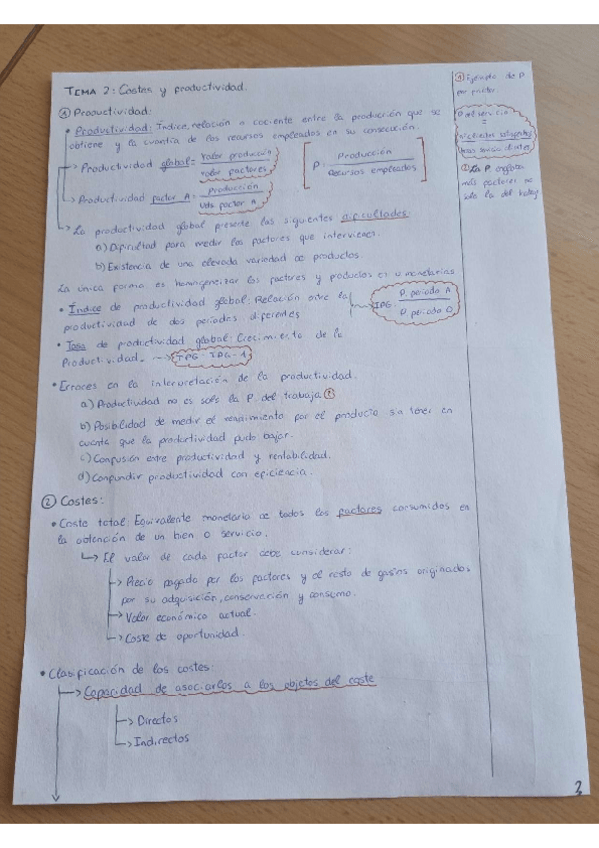 TEMA 2: Costes y productividad.
① Productividad:
• Productividad: Índice, relación o cociente entre la producción que se
obtiene y la cuantía de los recursos empleados en su consecución.
→ Productividad global = Valor producción / Valor factores
P = Producción / Recursos empleados
→ Productividad factor A = Producción / Uds factor A
→ La productividad global presenta las siguientes dificultades:
a) Dificultad para medir los factores que intervienen.
b) Existencia de una elevada variedad de productos.
La única forma es homogeneizar los factores y productos es u monetarias
• Índice de productividad global: Relación entre la
productividad de dos períodos diferentes
IPG = P. periodo A / P. periodo 0
• Tasa de productividad global: Crecimiento de la
Productividad. → TPG = IPG - 1
• Errores en la interpretación de la productividad.
a) Productividad no es solo la P. del trabajo ①
b) Posibilidad de medir el rendimiento por el producto sin tener en
cuenta que la productividad pudo bajar.
c) Confusión entre productividad y rentabilidad.
d) Confundir productividad con eficiencia.
② Costes:
• Coste total: Equivalente monetario de todos los factores consumidos en
la obtención de un bien o servicio.
↳ El valor de cada factor debe considerar:
→ Precio pagado por los factores y el resto de gastos originados
por su adquisición, conservación y consumo.
→ Valor económico actual.
→ Coste de oportunidad.
• Clasificación de los costes:
→ Capacidad de asociarlos a los objetos del coste
→ Directos
→ Indirectos
① Ejemplo de P
por factor
P del servicio
=
nº clientes
② La P. engloba
más factores no
solo la del
3